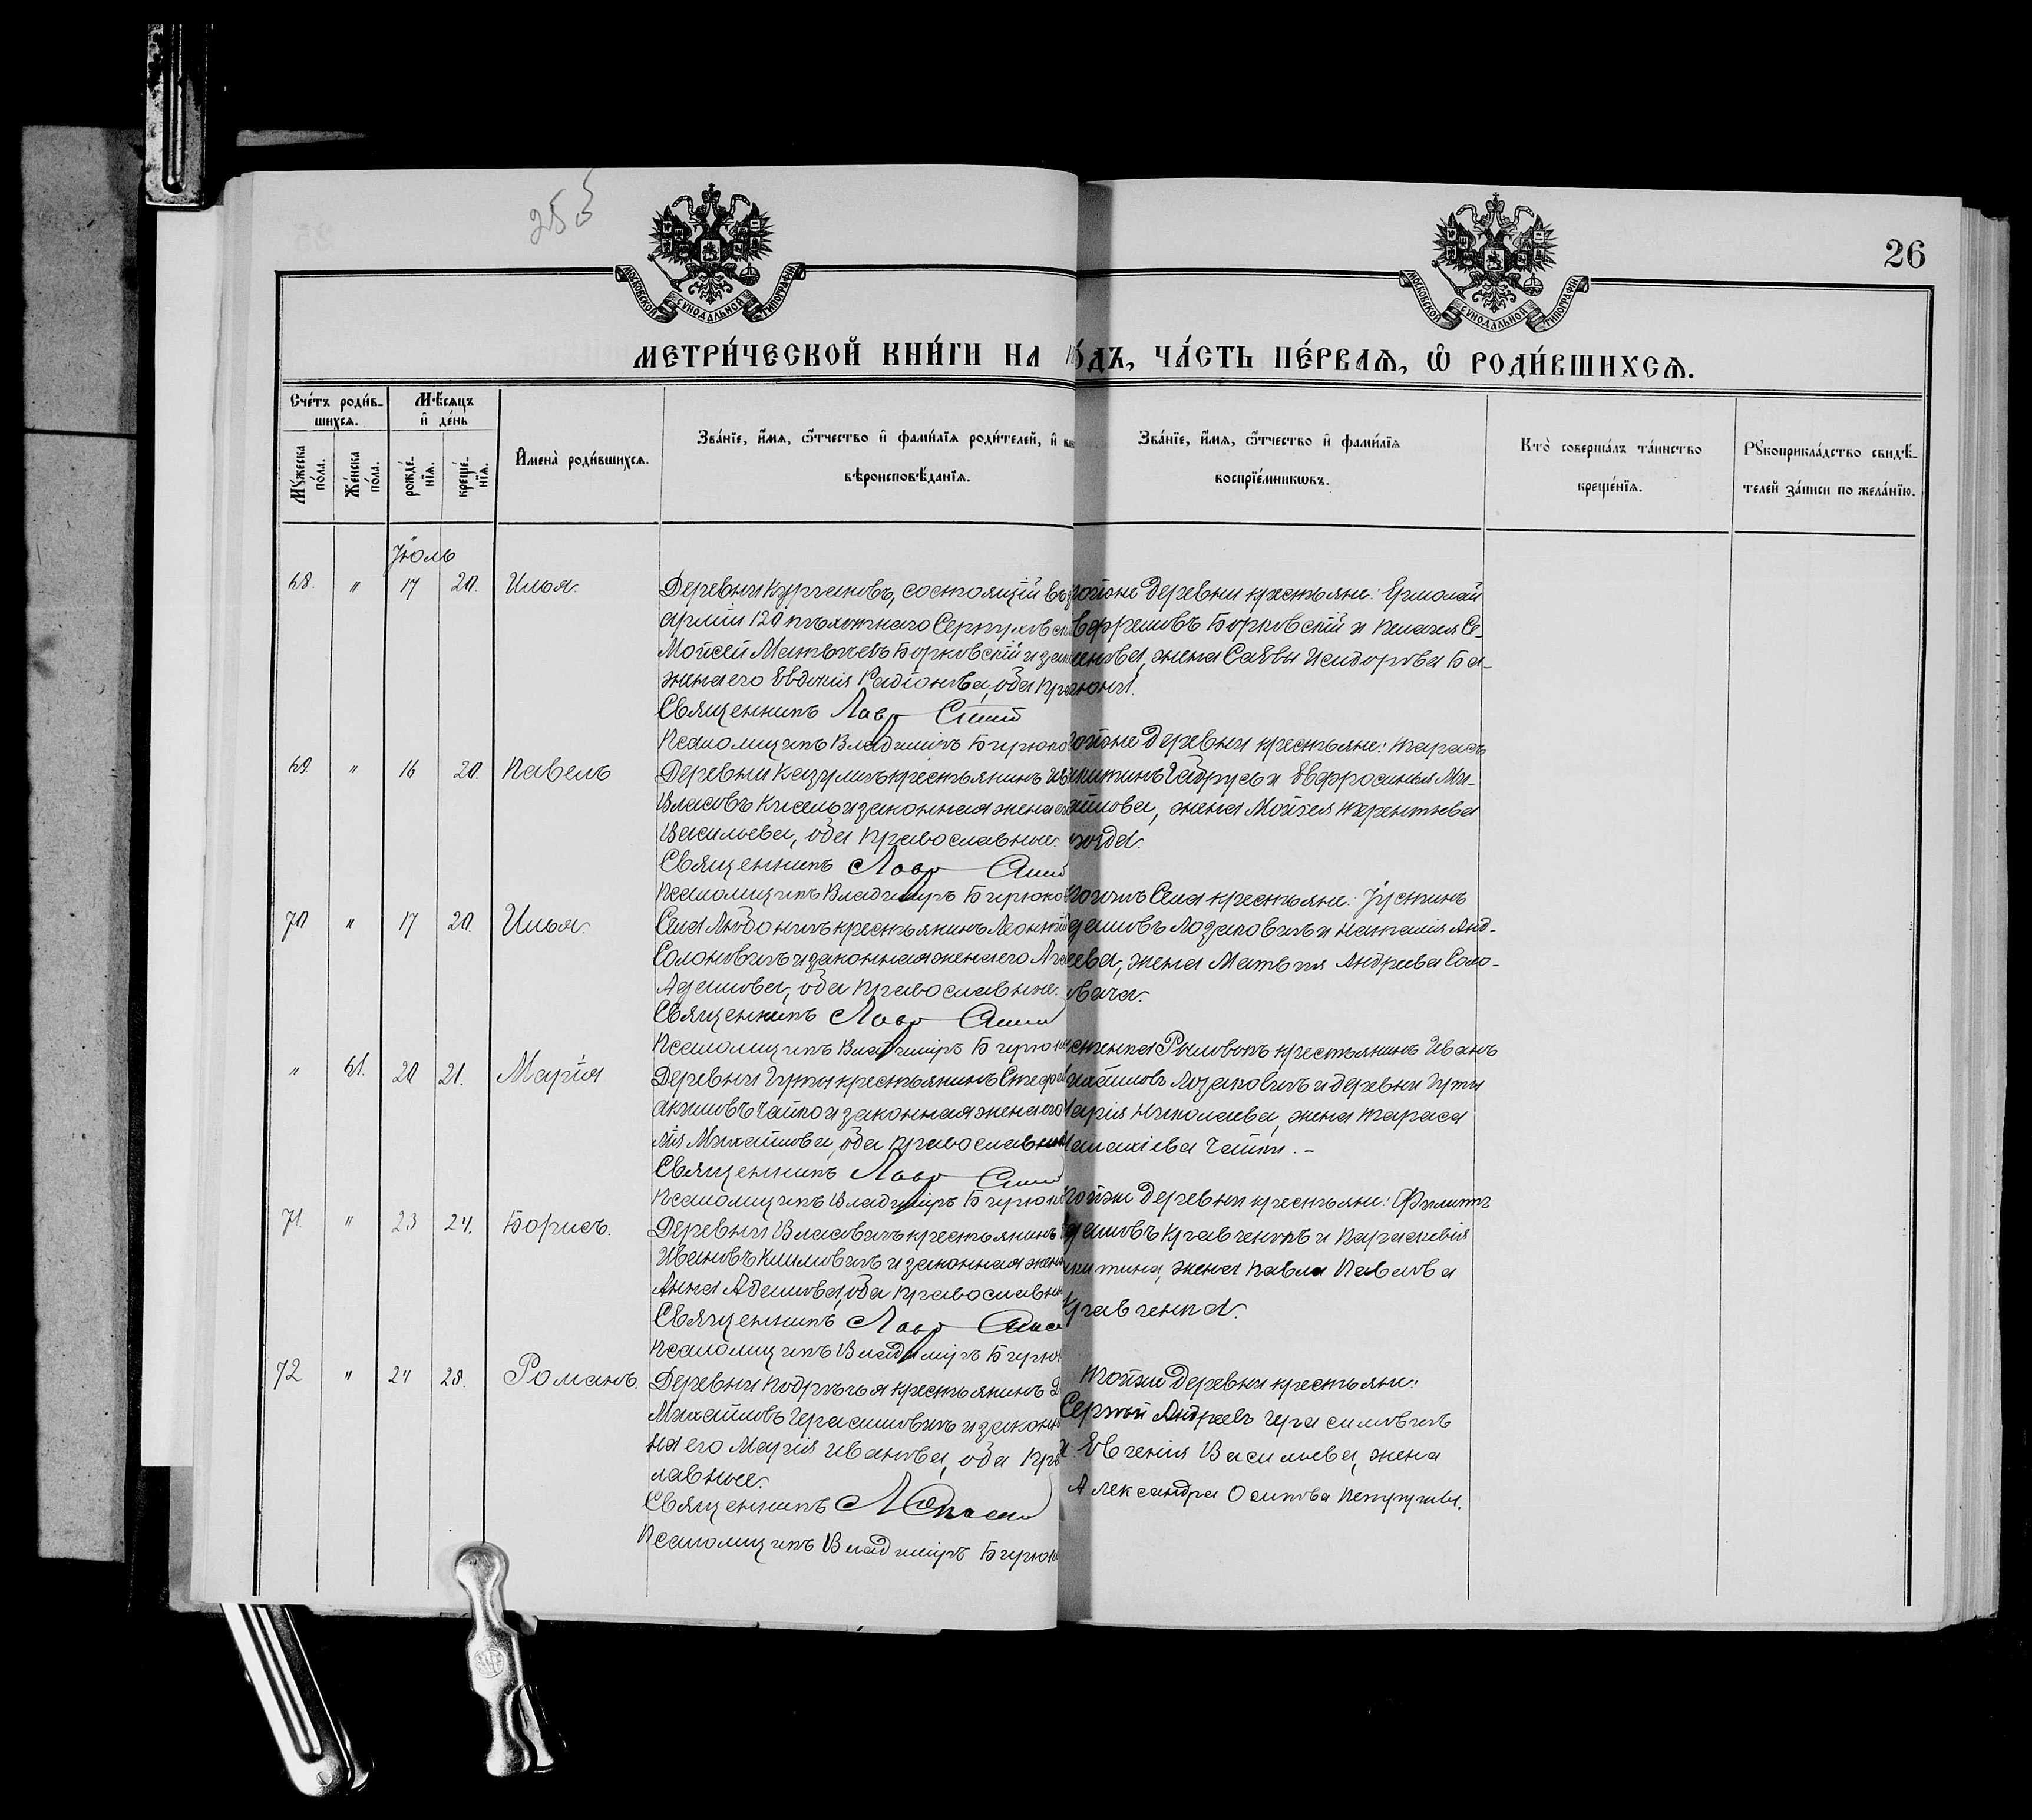 253
26
МОСКОВСКОЙ СУНОДАЛЬНОЙ ТИПОГРАФІИ
МОСКОВСКОЙ СУНОДАЛЬНОЙ ТИПОГРАФІИ
МЕТРИ́ЧЕСКОЙ КНИ́ГИ НА
О́ДЪ, ЧА́СТЬ ПЕ́РВАѦ, Ѡ҆ РОДИ́ВШИХСѦ.
Сче́тъ роди́в-
шихсѧ.
Мꙋ́жеска по́ла.
Же́нска по́ла.
Мѣ́сѧцъ
и҆ де́нь
рожде́-
нїѧ.
креще́-
нїѧ.
И҆мена̀ роди́вшихсѧ.
Зва́нїе, и҆́мѧ, ѻ҆́тчество и҆ фами́лїѧ роди́телей, и҆
вѣроисповѣ́данїѧ.
Зва́нїе, и҆́мѧ, ѻ҆́тчество и҆ фами́лїѧ
воспрїе́мникѡвъ.
Кто̀ соверша́лъ та́инство
креще́нїѧ.
Рꙋкоприкла́дство свидѣ́-
телей за́писи по жела́нїю.
Іюль
68. " 17 20. Илья.
Деревни Кургановъ, состоящій въ
арміи 120 пѣхотнаго Серпуховск
Мойсей Матѳеевъ Борковскій и зак
жена его Евдокія Радіонова, оба пра
Священникъ Лавр
Псаломщикъ Владиміръ Бирюко
тойже деревни крестьяне: Ермолай
Борковскій и Пелагея Се-
менова, жена Саввы Исидорова Ба-
69. " 16 20. Павелъ
Деревни Казуличъ крестьянинъ
Власовъ Кисель и законная жена его
Васильева, оба православные.
Священникъ Лавр
Псаломщикъ Владиміръ Бирюков
тойже деревни крестьяне: Тарасъ
и Евфросинья Ми-
хайлова, жена Мойсея Терентьева
70 " 17 20. Илья.
Села Любоничъ крестьянинъ Леонтій
Солоновичъ и законная жена его
Адамова, оба православные.
Священникъ Лавр
Псаломщикъ Владиміръ Бирюков
тогожъ Села крестьяне: Іустинъ
Адамовъ Лозаковичъ и Наталія Анд-
реева, жена Матѳея Андреева Соло-
" 61. 20 21. Марія
Деревни Гуты крестьянинъ Стеф
Чайко и законная жена его
лія Михайлова, оба православные
Священникъ Лавр
Псаломщикъ Владиміръ Бирюк
крестьянинъ Иванъ
Михайловъ Лозаковичъ и деревни Гуты
Марія Николаева, жена Тараса
Чайки. –
71. " 23 24. Борисъ.
Деревни Власовичъ крестьянинъ
Ивановъ Климовичъ и законная жена
Анна Адамова, оба православны
Священникъ Лавр
Псаломщикъ Владиміръ Бирюк
тойже деревни крестьяне: Филиппъ
Адамовъ Кравченокъ и Параскевія
Никитина, жена Павла Павлова
Кравченка.
72 " 24 28. Романъ.
Деревни Подрѣчья крестьянинъ
Михайловъ Герасимовичъ и законн
на его Марія Иванова, оба прав
лавные.
Священникъ
Псаломщикъ Владиміръ Бирюк
тойже деревни крестьяне:
Сергѣй Андреевъ Герасимовичъ
и Евгенія Васильева, жена
Александра Осипова